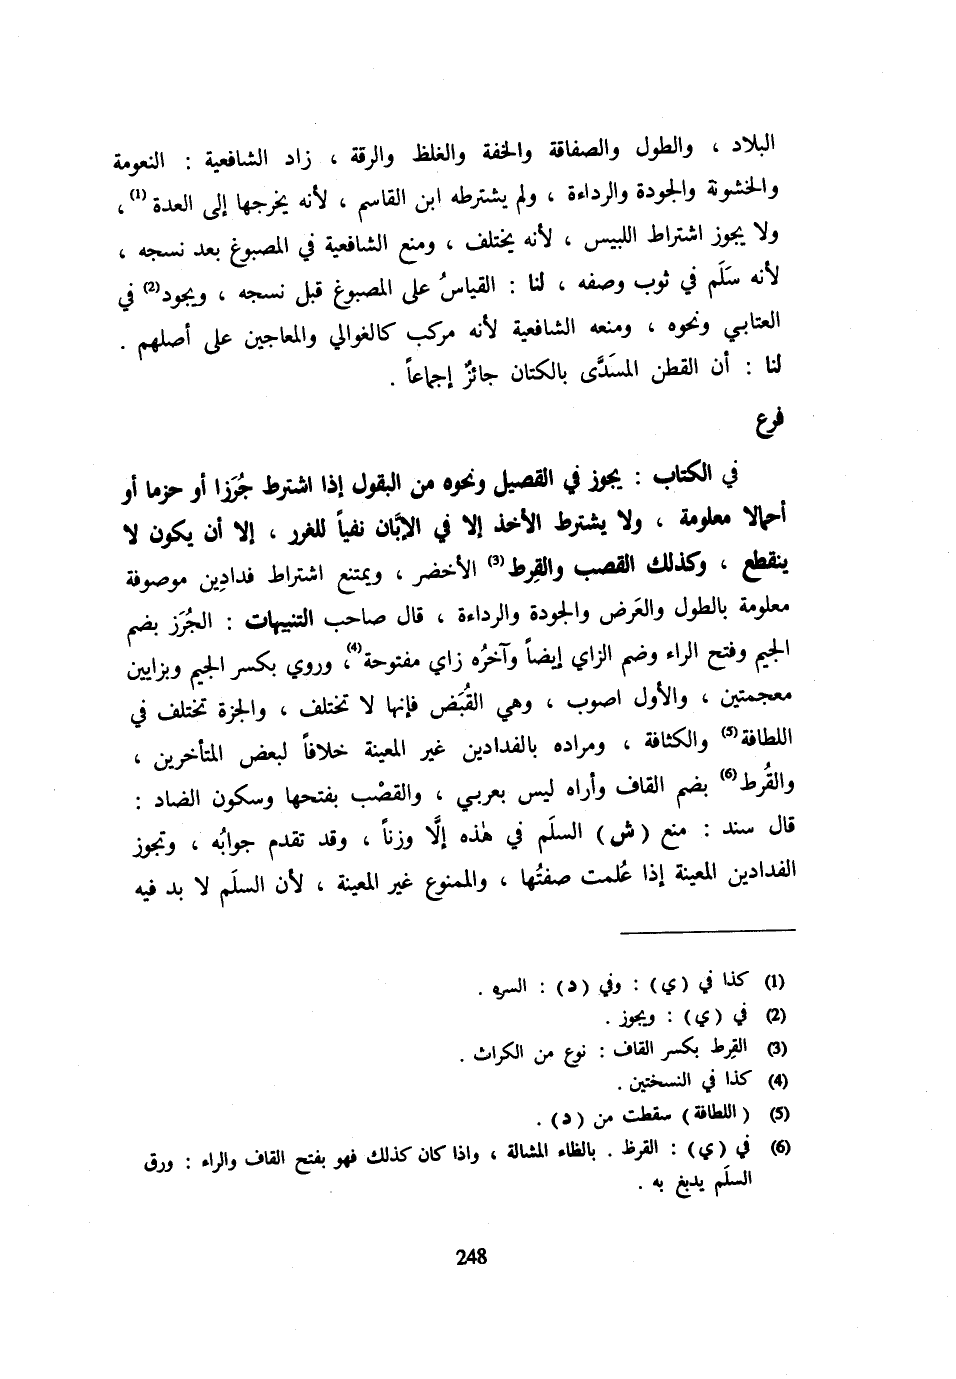 البلاد ، والطول والصفاقة والخفة والغلظ والرقة ، زاد الشافعية : النعومة
والخشونة والجودة والرداءة ، ولم يشترطه ابن القاسم ، لأنه يخرجها إلى العدة (1) ،
ولا يجوز اشتراط اللبيس ، لأنه يختلف ، ومنع الشافعية في المصبوغ بعد نسجه ،
لأنه سَلَم في ثوب وصفه ، لنا : القياسُ على المصبوغ قبل نسجه ، ويجود(2) في
العتابي ونحوه ، ومنعه الشافعية لأنه مركب كالغوالي والمعاجين على أصلهم .
لنا : أن القطن المسَدَّى بالكتان جائزٌ إجماعاً .
فرع
في الكتاب : يجوز في القصيل ونحوه من البقول إذا اشترط جُرَزا أو حزما أو
أحمالا معلومة ، ولا يشترط الأخذ إلا في الإبَّان نفياً للغرر ، إلا أن يكون لا
ينقطع ، وكذلك القصب والقِرط(3) الأخضر ، ويمتنع اشتراط فدادِين موصوفة
معلومة بالطول والعَرض والجودة والرداءة ، قال صاحب التنبيهات : الجُرَز بضم
الجيم وفتح الراء وضم الزاي إيضاً وآخرُه زاي مفتوحة(4)، وروي بكسر الجيم وبزايين
معجمتين ، والأول اصوب ، وهي القُبَض فإنها لا تختلف ، والجزة تختلف في
اللطافة(5) والكثافة ، ومراده بالفدادين غير المعينة خلافاً لبعض المتأخرين ،
والقُرط(6) بضم القاف وأراه ليس بعربي ، والقصْب بفتحها وسكون الضاد :
قال سند : منع ( ش ) السلَم في هٰذه إلَّا وزناً ، وقد تقدم جوابُه ، وتجوز
الفدادين المعينة إذا عُلمت صفتُها ، والممنوع غير المعينة ، لأن السلَم لا بد فيه
(1) كذا في ( ي ) : وفي ( د ) : السره .
(2) في ( ي ) : ويجوز .
(3) القِرط بكسر القاف : نوع من الكراث .
(4) كذا في النسختين .
(5) ( اللطافة ) سقطت من ( د ) .
(6) في ( ي ) : القرظ . بالظاء المشالة ، واذا كان كذلك فهو بفتح القاف والراء : ورق
السلَم يدبغ به .
248